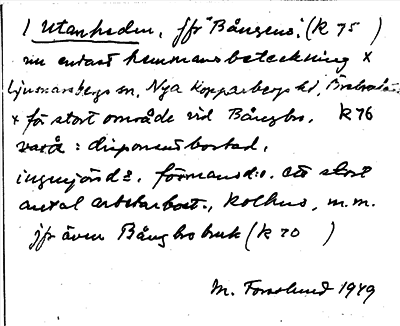 1 Utanheden, jfr "Bångens", (K 75 )
nu endast hemmansbeteckning x
Ljusnarsbergs sn, Nya Kopparbergs hd,
x för stort område vid Bångbro. K 76
varå : disponentbostad,
ingenjörsd:o, förmansd:o. ett stort
antal arbetarbost., kolhus, m.m.
jfr även Bångbro bruk (K 70 )
M. Forslund 1949